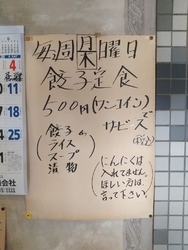 毎週木曜日
餃子定食
500円(ワンコイン)
サービスで
(税込)
餃子6ヶ
ライス
スープ
漬物
にんにくは
入れてません。
ほしい方は
言って下さい。
4
10 11
17 18
24 25
式会社